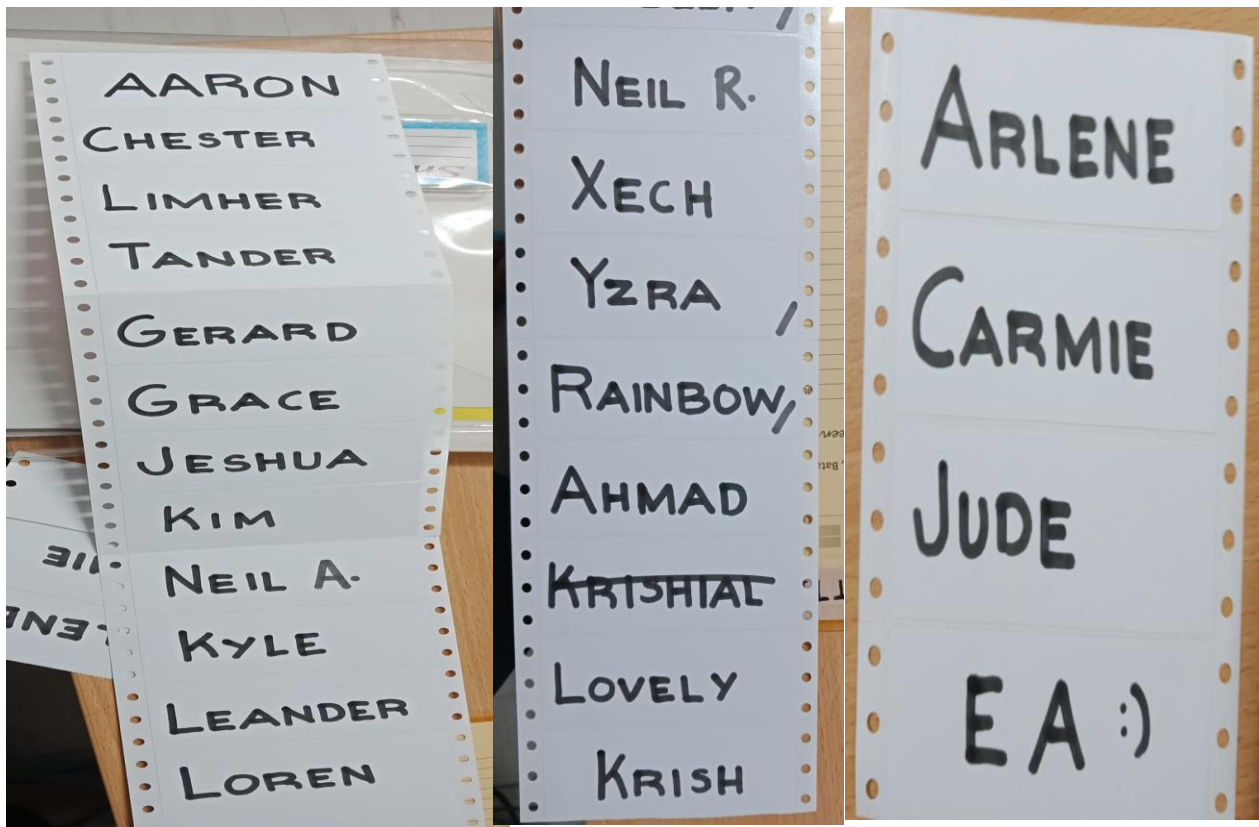 AARON
CHESTER
LIMHER
TANDER
GERARD
GRACE
JESHUA
KIM
NEIL A.
KYLE
LEANDER
LOREN
NEIL R.
XECH
YZRA /
RAINBOW /
AHMAD
KRISHIAL
LOVELY
KRISH
ARLENE
CARMIE
JUDE
EA :)